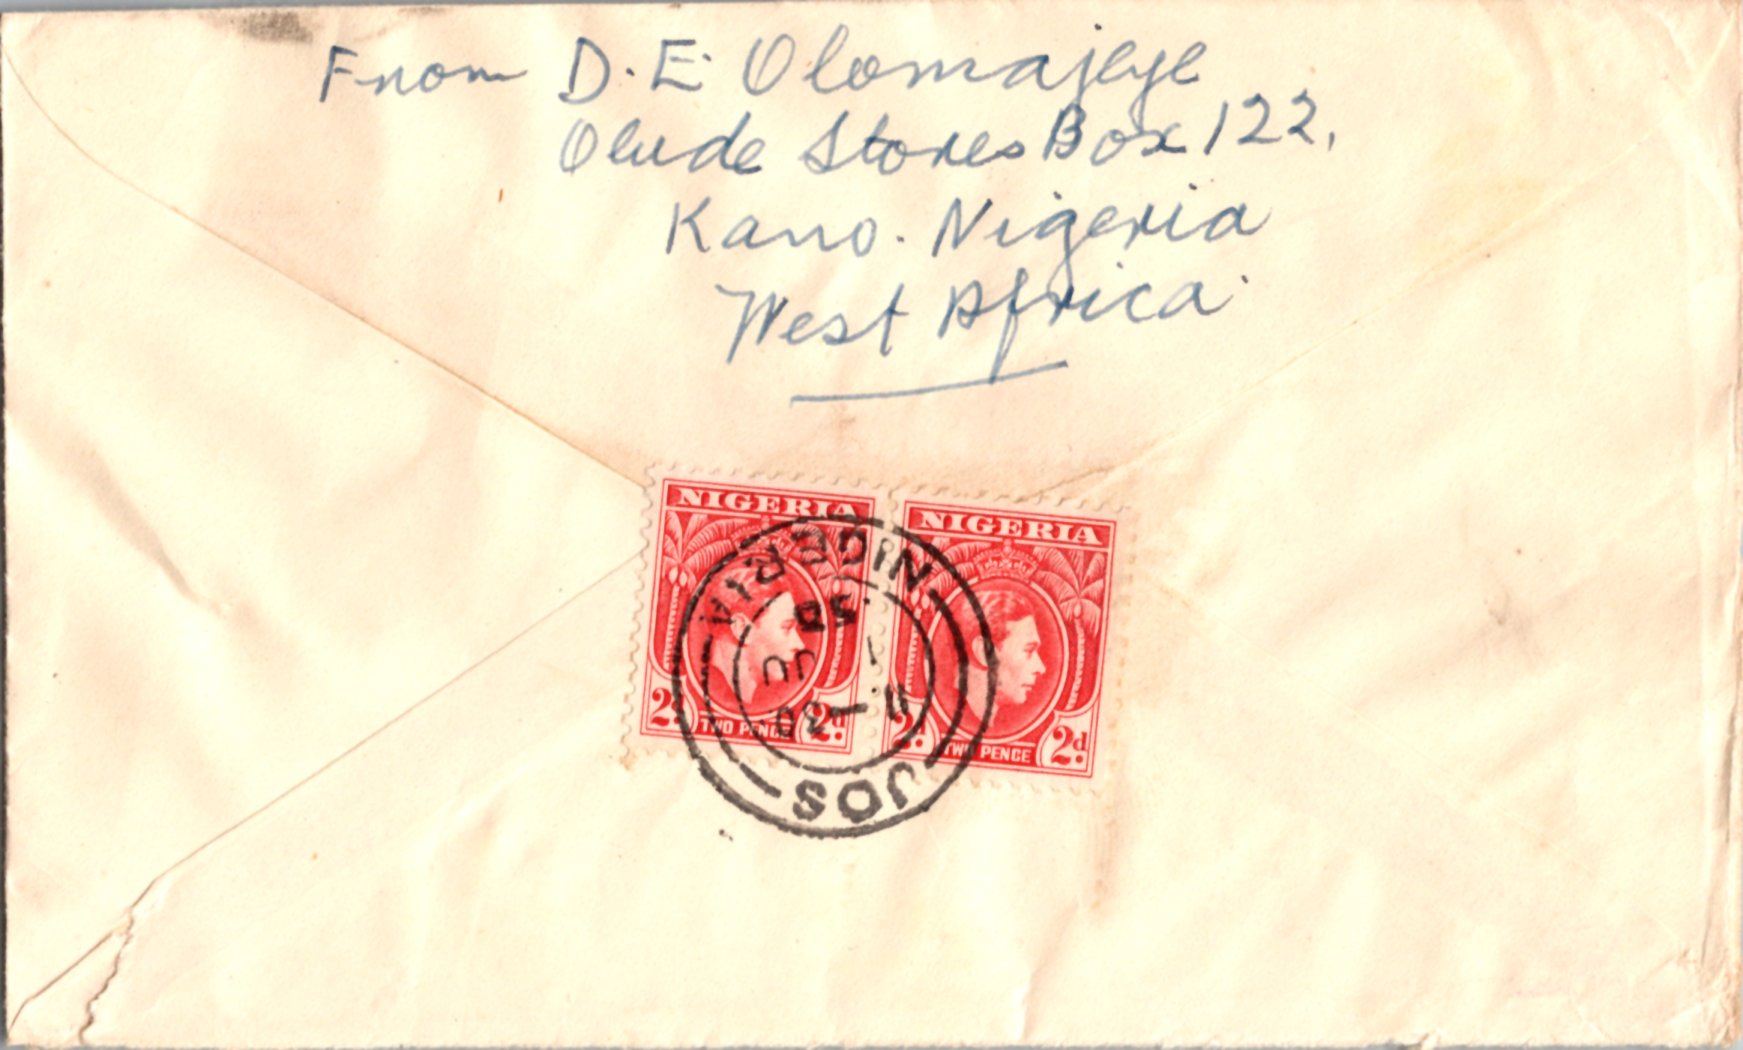 From D. E. Olomajeye
Olude Stores Box 122,
Kano. Nigeria
West Africa
NIGERIA
2d
TWO PENCE
2d
NIGERIA
2d
TWO PENCE
2d
NIGERIA
JOS